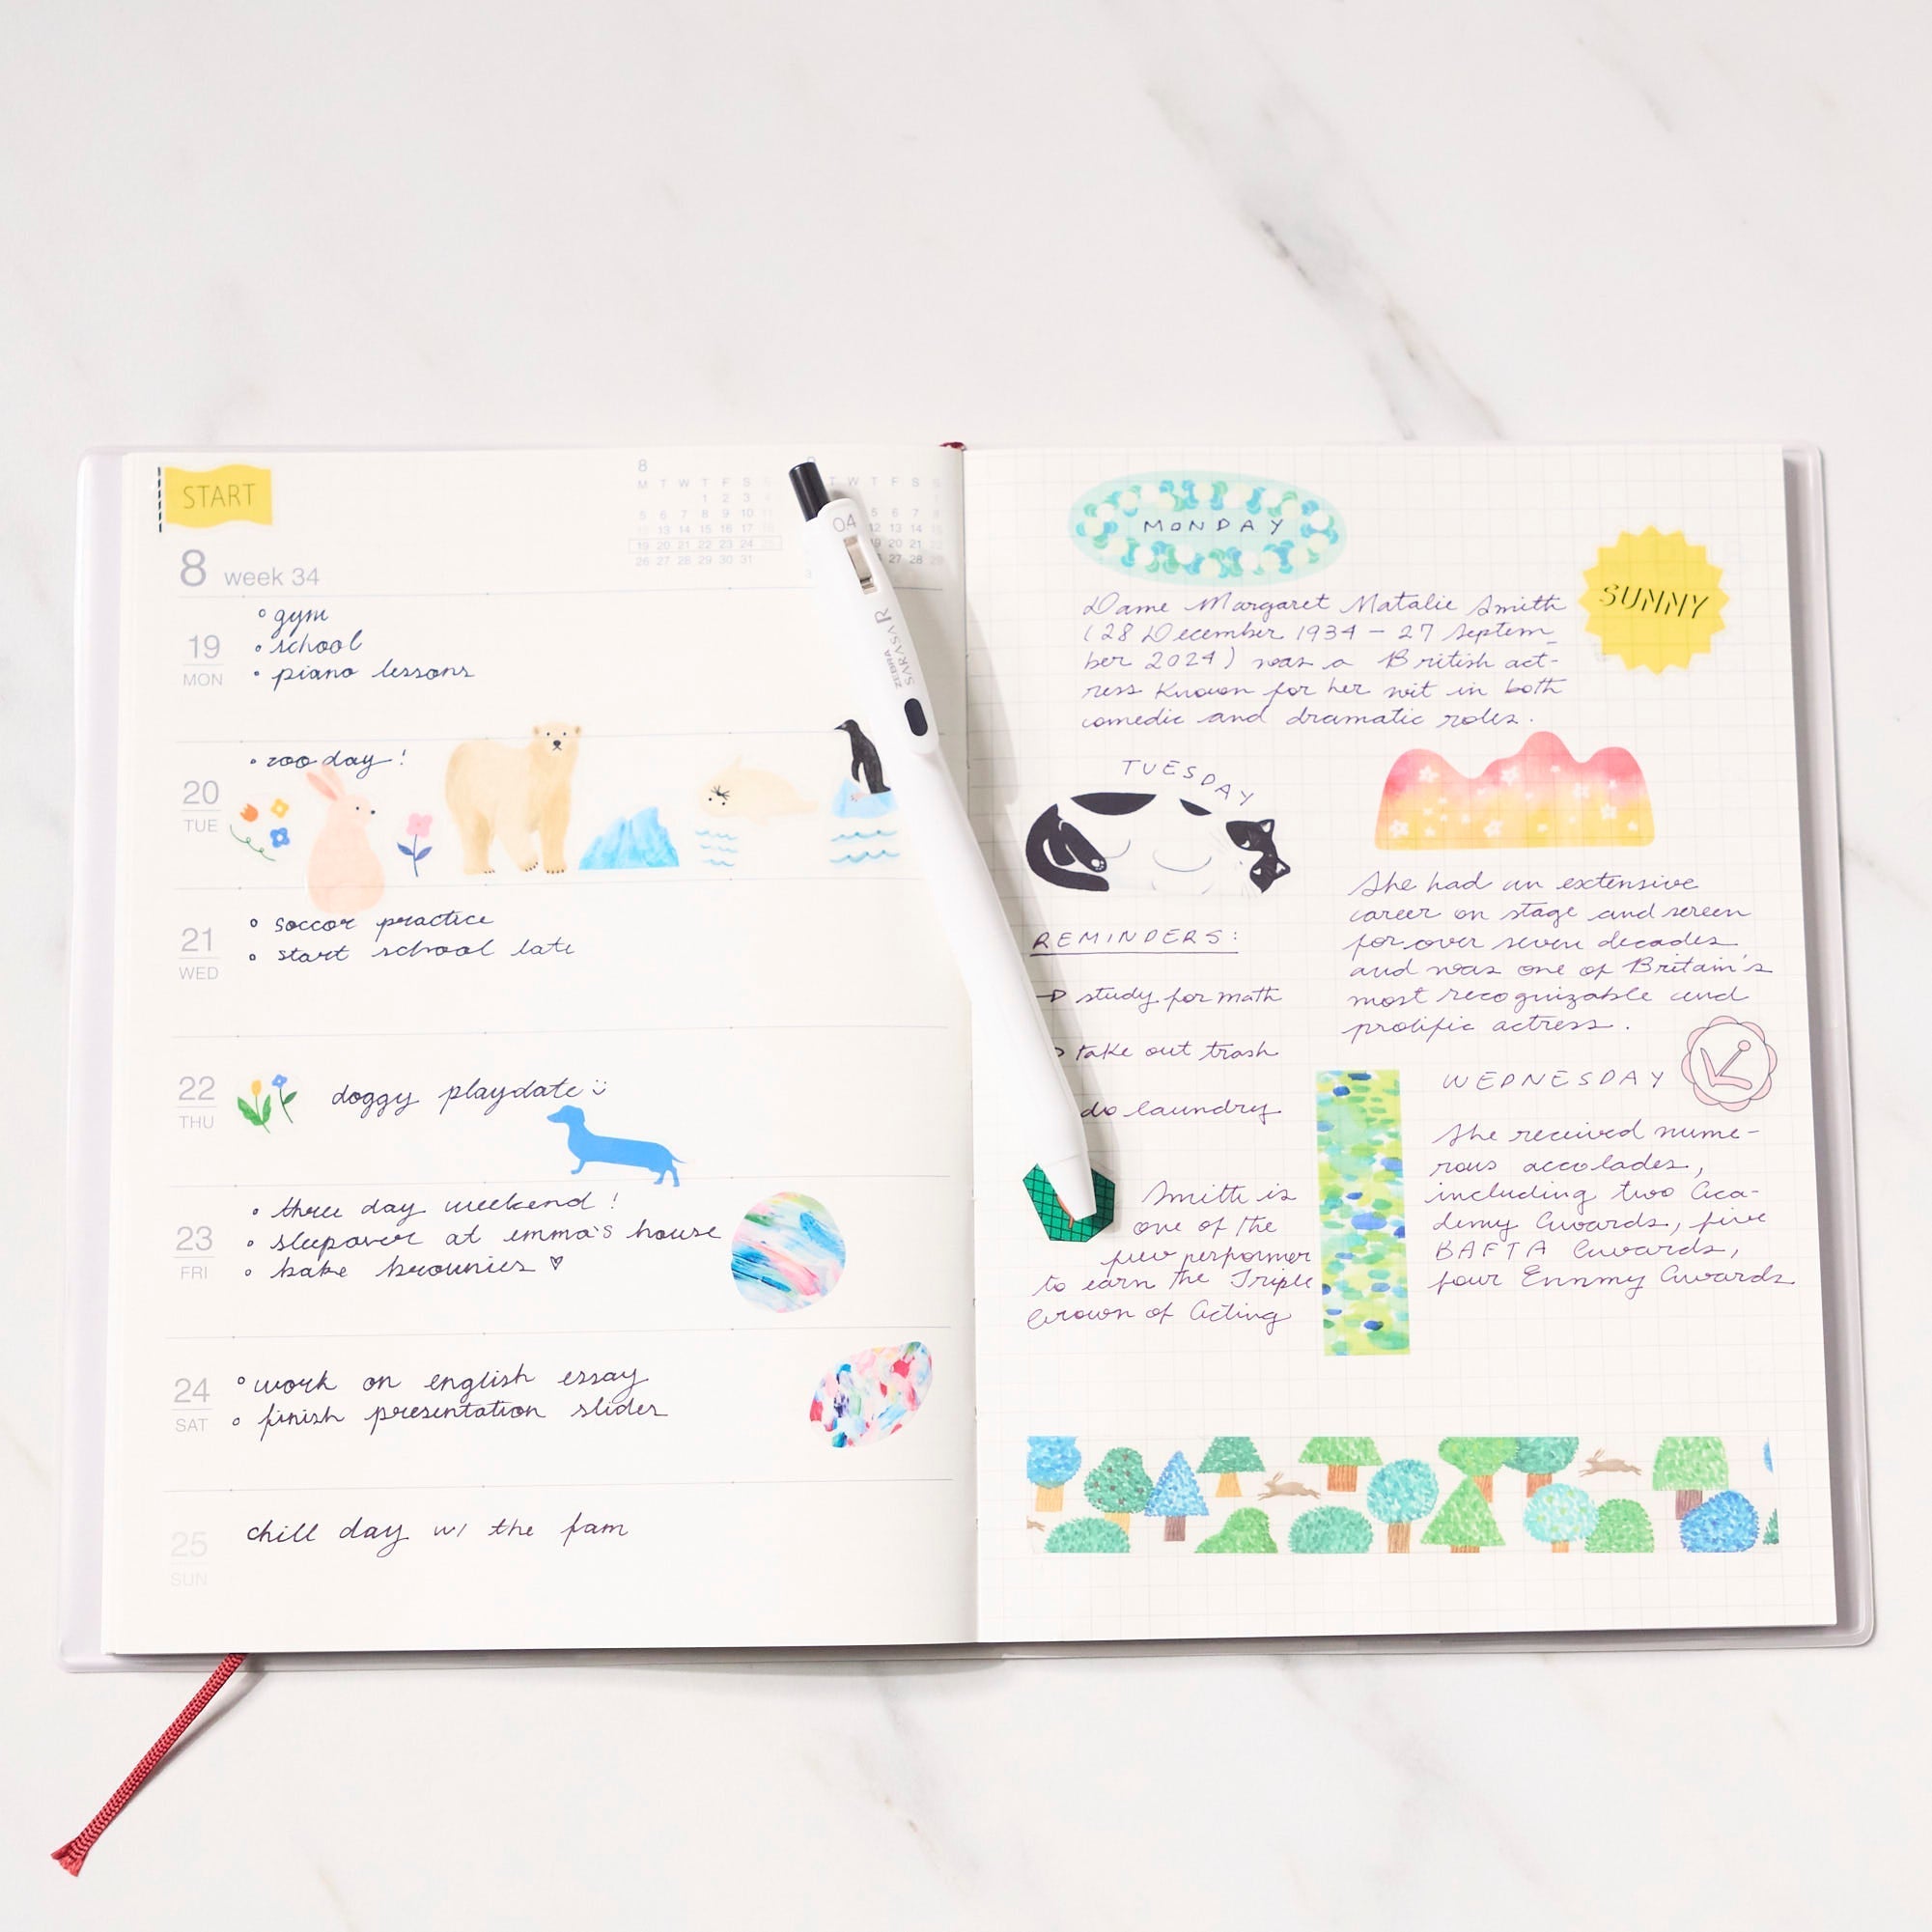 START
8 week 34
8
M T W T F S S
1 2 3 4
5 6 7 8 9 10 11
12 13 14 15 16 17 18
19 20 21 22 23 24 25
26 27 28 29 30 31
T W T F S S
5 6 7 8
12 13 14 15
19 20 21 22
27 28 29
19
MON
° gym
• school
• piano lessons
20
TUE
• zoo day!
21
WED
° soccor practice
° start school late
22
THU
doggy playdate
23
FRI
• three day weekend!
• sleepover at emma's house
° bake brownies ♡
24
SAT
° work on english essay
° finish presentation slides
25
SUN
chill day w/ the fam
04
ZEBRA
SARASA R
MONDAY
SUNNY
Dame Margaret Natalie Smith
(28 December 1934 – 27 Septem-
ber 2024) was a British act-
ress known for her wit in both
comedic and dramatic roles.
TUESDAY
She had an extensive
career on stage and screen
for over seven decades
and was one of Britain's
most recognizable and
prolific actress.
REMINDERS:
→ study for math
take out trash
do laundry
Smith is
one of the
few performer
to earn the Triple
Crown of Acting
WEDNESDAY
She received nume-
rous accolades,
including two Aca-
demy Awards, five
BAFTA Awards,
four Emmy Awards